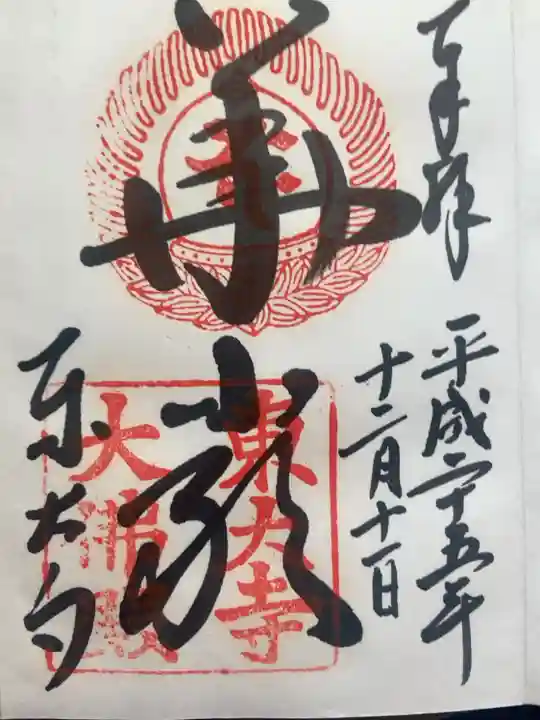 奉拝
平成二十五年
十二月十一日
華厳
東大寺
東大寺
大佛殿